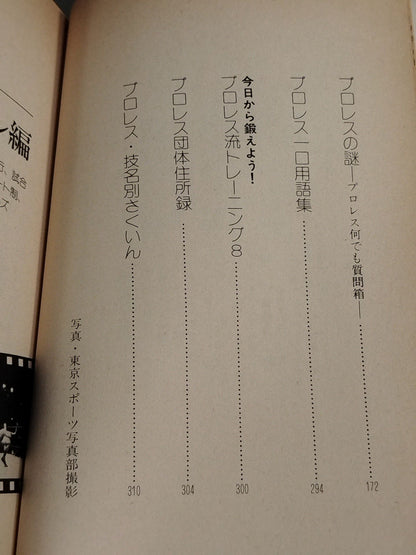 プロレスの謎―プロレス何でも質問箱― 172
プロレス一口用語集 294
今日から鍛えよう!
プロレス流トレーニング8 300
プロレス団体住所録 304
プロレス・技名別さくいん 310
写真・東京スポーツ写真部撮影
編
試合
ト割、
ズ